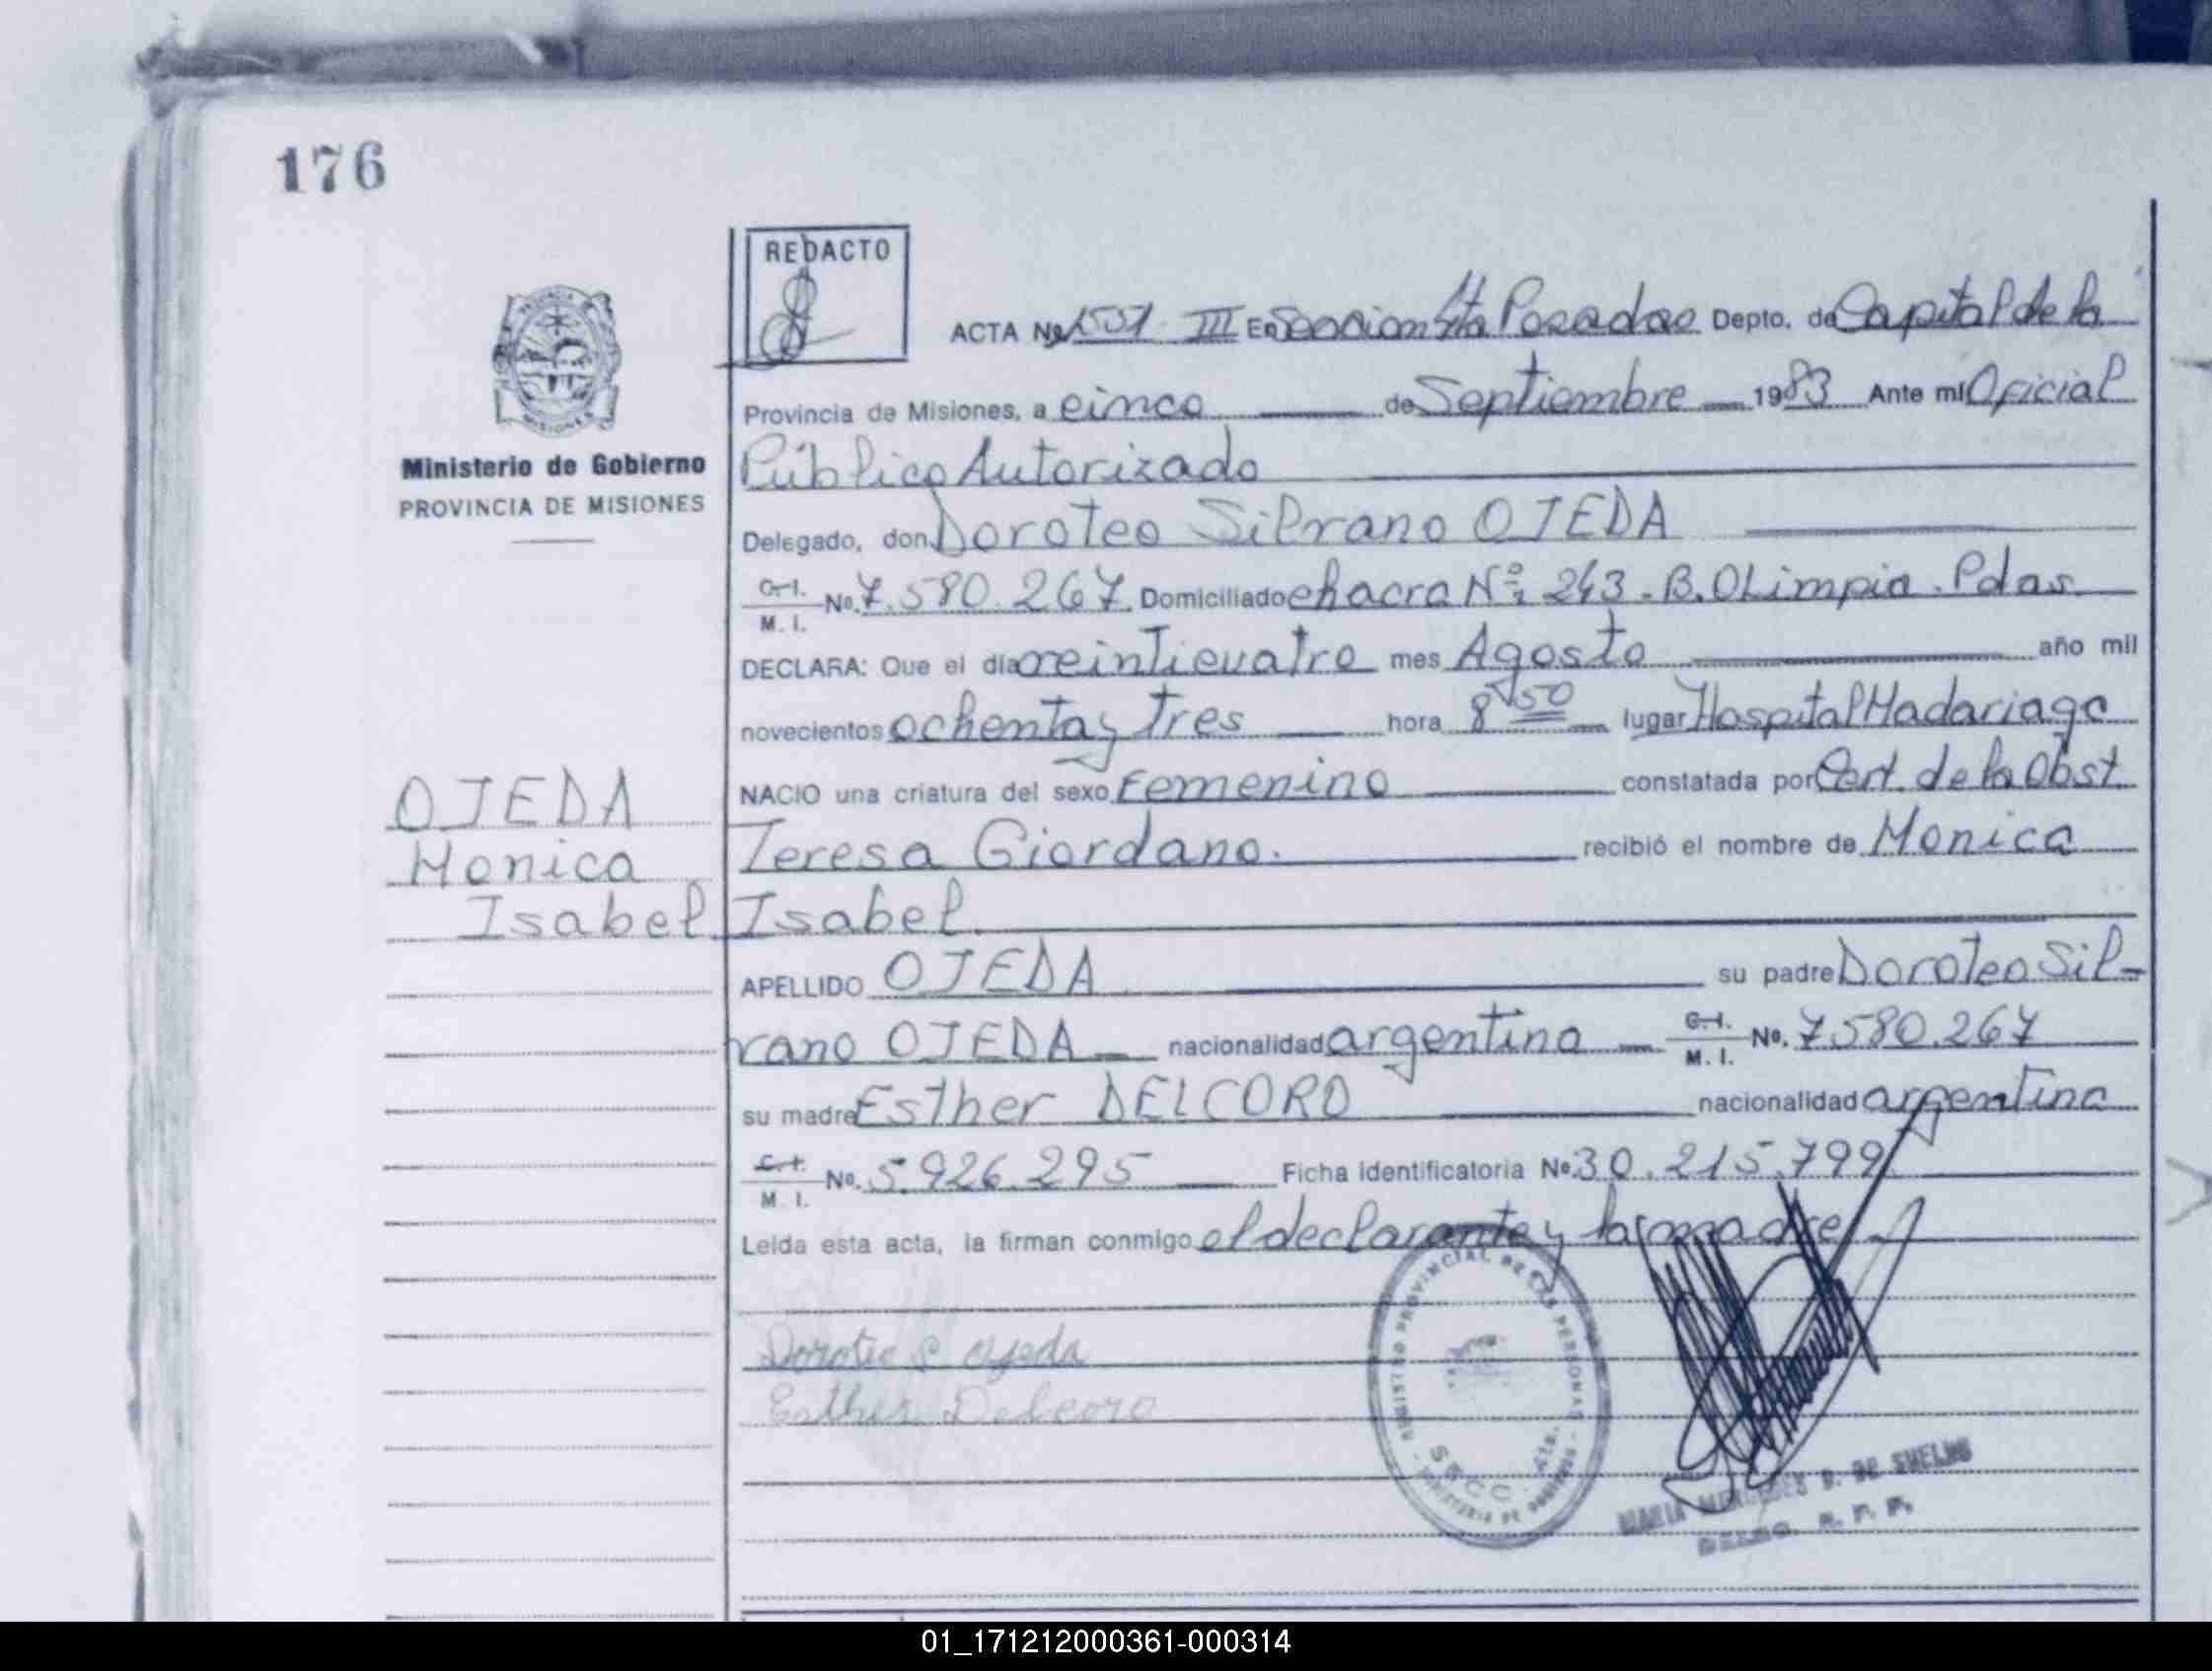 176
REDACTO
ACTA Nº 1501 III En Sección 4ta Posadas Depto. de Capital de la
Provincia de Misiones, a cinco de Septiembre 1983 Ante mi Oficial
Ministerio de Gobierno
PROVINCIA DE MISIONES
Público Autorizado
Delegado, don Doroteo Silvano OJEDA
C.I. M. I. No. 7.580.267. Domiciliado chacra Nº 243 - B. OLimpia. Pdas.
DECLARA: Que el día veinticuatro mes Agosto año mil
novecientos ochenta y tres hora 8 50 lugar Hospital Madariaga
NACIO una criatura del sexo Femenino constatada por Cert. de la Obst.
OJEDA
Monica
Isabel
Teresa Giordano. recibió el nombre de Monica
Isabel
APELLIDO OJEDA su padre Doroteo Sil-
vano OJEDA nacionalidad argentina C.I. M. I. No. 7.580.267
su madre Esther DELCORO nacionalidad argentina
C.I. M. I. No. 5.926.295 Ficha identificatoria Nº 30.215.799
Leída esta acta, la firman conmigo el declarante y la madre
Doroteo S Ojeda
Esther Delcoro
REGISTRO PROVINCIAL DE LAS PERSONAS
SECC. 4ta.
MINISTERIO DE GOBIERNO
MARIA MERCEDES D. DE
DELEG. R. P. P.
01_171212000361-000314